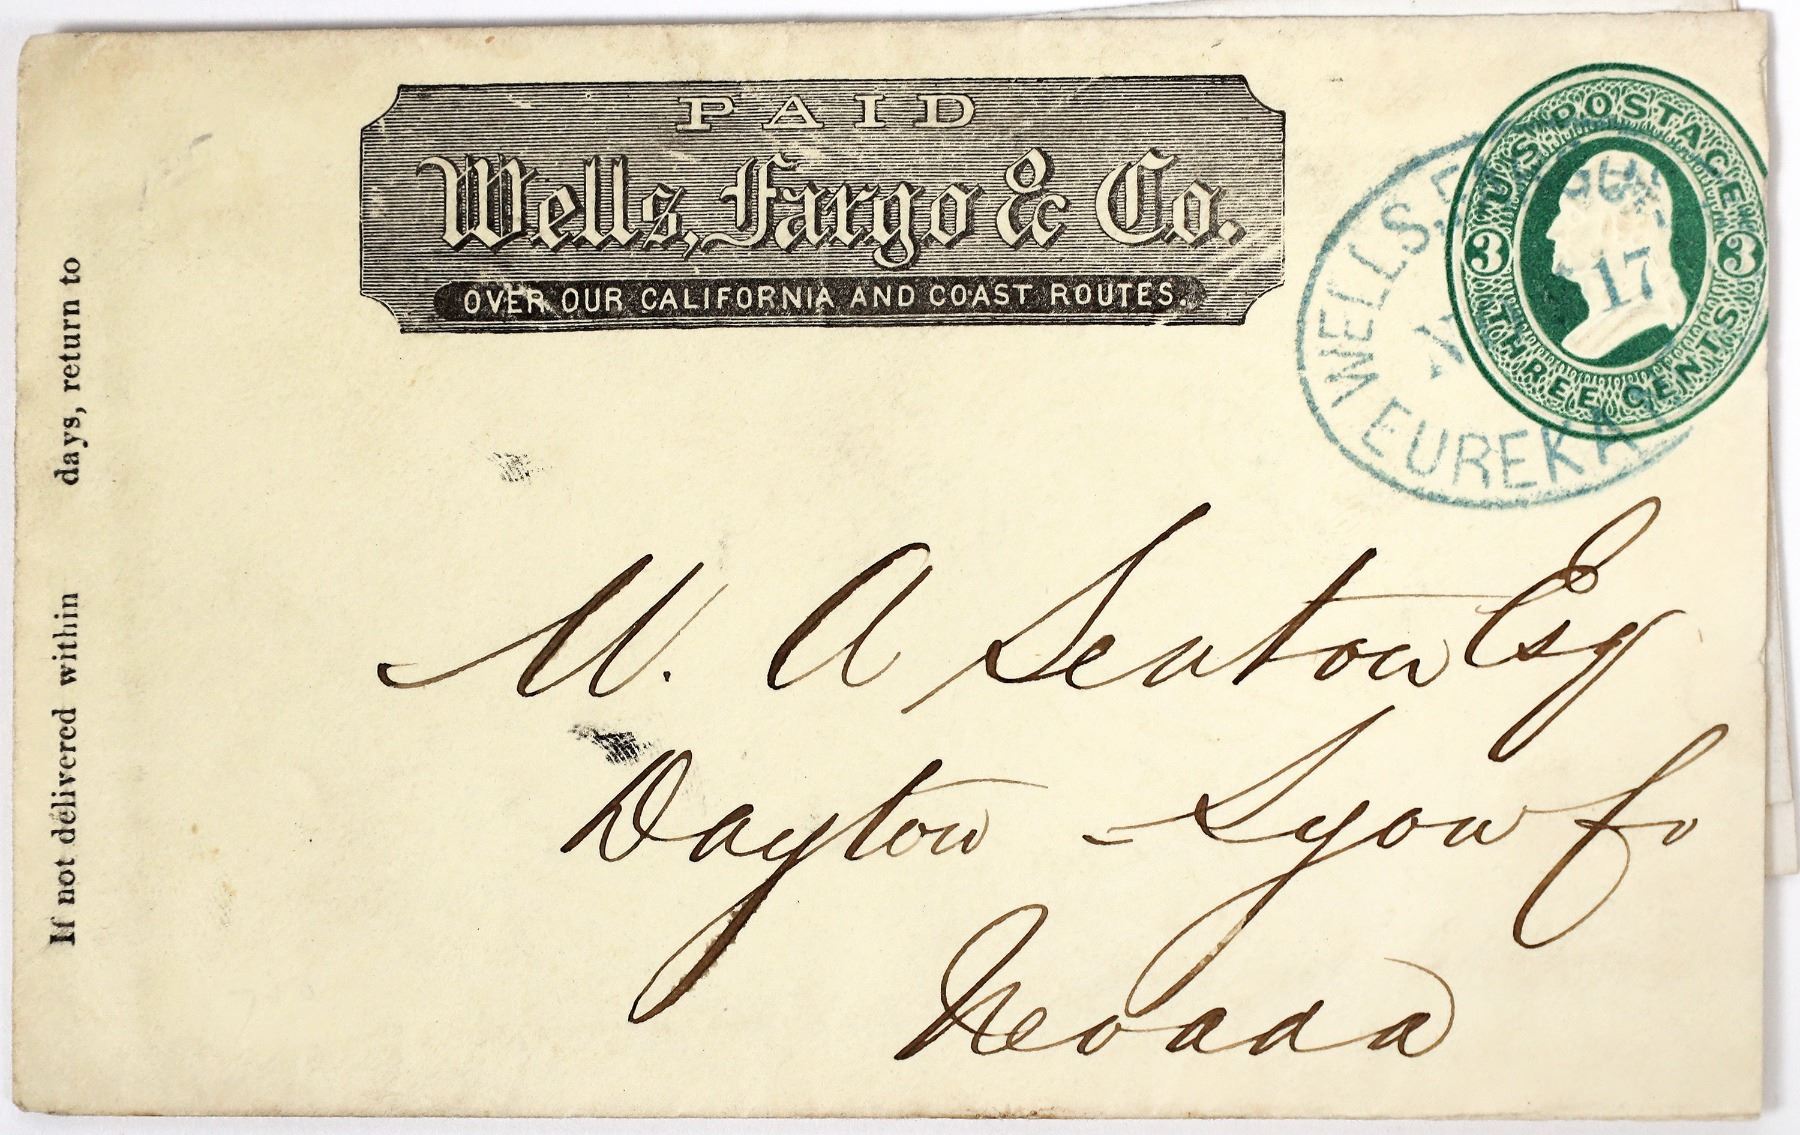 PAID
Wells, Fargo & Co.
OVER OUR CALIFORNIA AND COAST ROUTES.
US POSTAGE
3 3
THREE CENTS
WELLS, F
17
EUREKA
If not delivered within days, return to
W. A Seaton Esq
Dayton - Lyon Co
Nevada